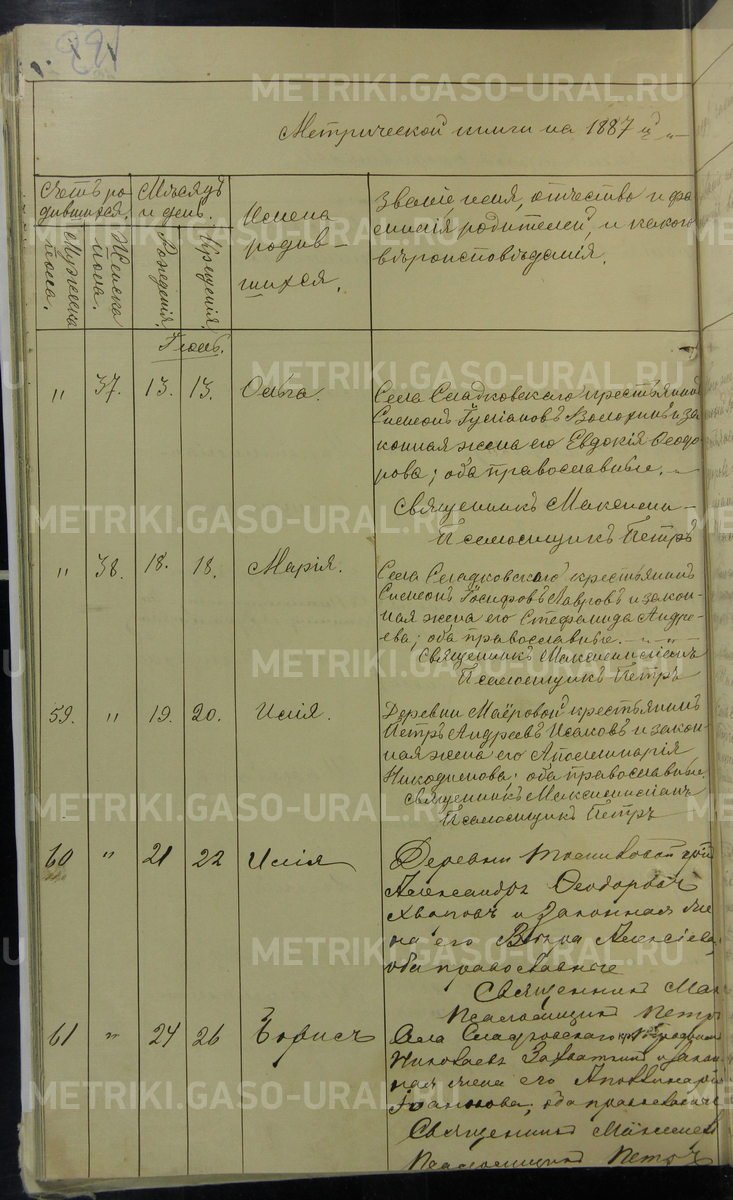 Метрической книги на 1887 й
Счетъ ро-
дившихся.
Мѣсяцъ
и день.
Мужеска
пола.
Женска
пола.
Рожденія.
Крещенія.
Имена
родив-
шихся.
Званіе, имя, отчество и фа-
милія родителей, и какого
вѣроисповѣданія.
Іюль.
" 37. 13. 13. Ольга.
Села Сладковского крестьянинъ
Симеонъ и за
конная жена его Евдокія Ѳеодо
рова; оба православные.
Священникъ Максими
Псаломщикъ Петръ
" 38. 18. 18. Марія.
Села Сладковского крестьянинъ
Симеонъ Іосифовъ Лавровъ и закон-
ная жена его Стефанида Андре-
ева; оба православные.
Священникъ Максимиліанъ
Псаломщикъ Петръ
59. " 19. 20. Илія.
Деревни Маёровой крестьянинъ
Петръ Андреевъ Исаковъ и закон-
ная жена его Аполлинарія
Никодимова; оба православные.
Священникъ Максимиліанъ
Псаломщикъ Петръ
60 " 21 22 Илія
Деревни
Александръ Ѳеодоровъ
и законная же
на его Вѣра Алексіева,
оба православные
Священникъ Мак
Псаломщикъ Петръ
61 " 24 26 Борисъ
Села Сладковского
Николаевъ и закон
ная жена его Аполлинарія
Іоаннова, оба православные
Священникъ Максимил
Псаломщикъ Петръ
METRIKI.GASO-URAL.RU